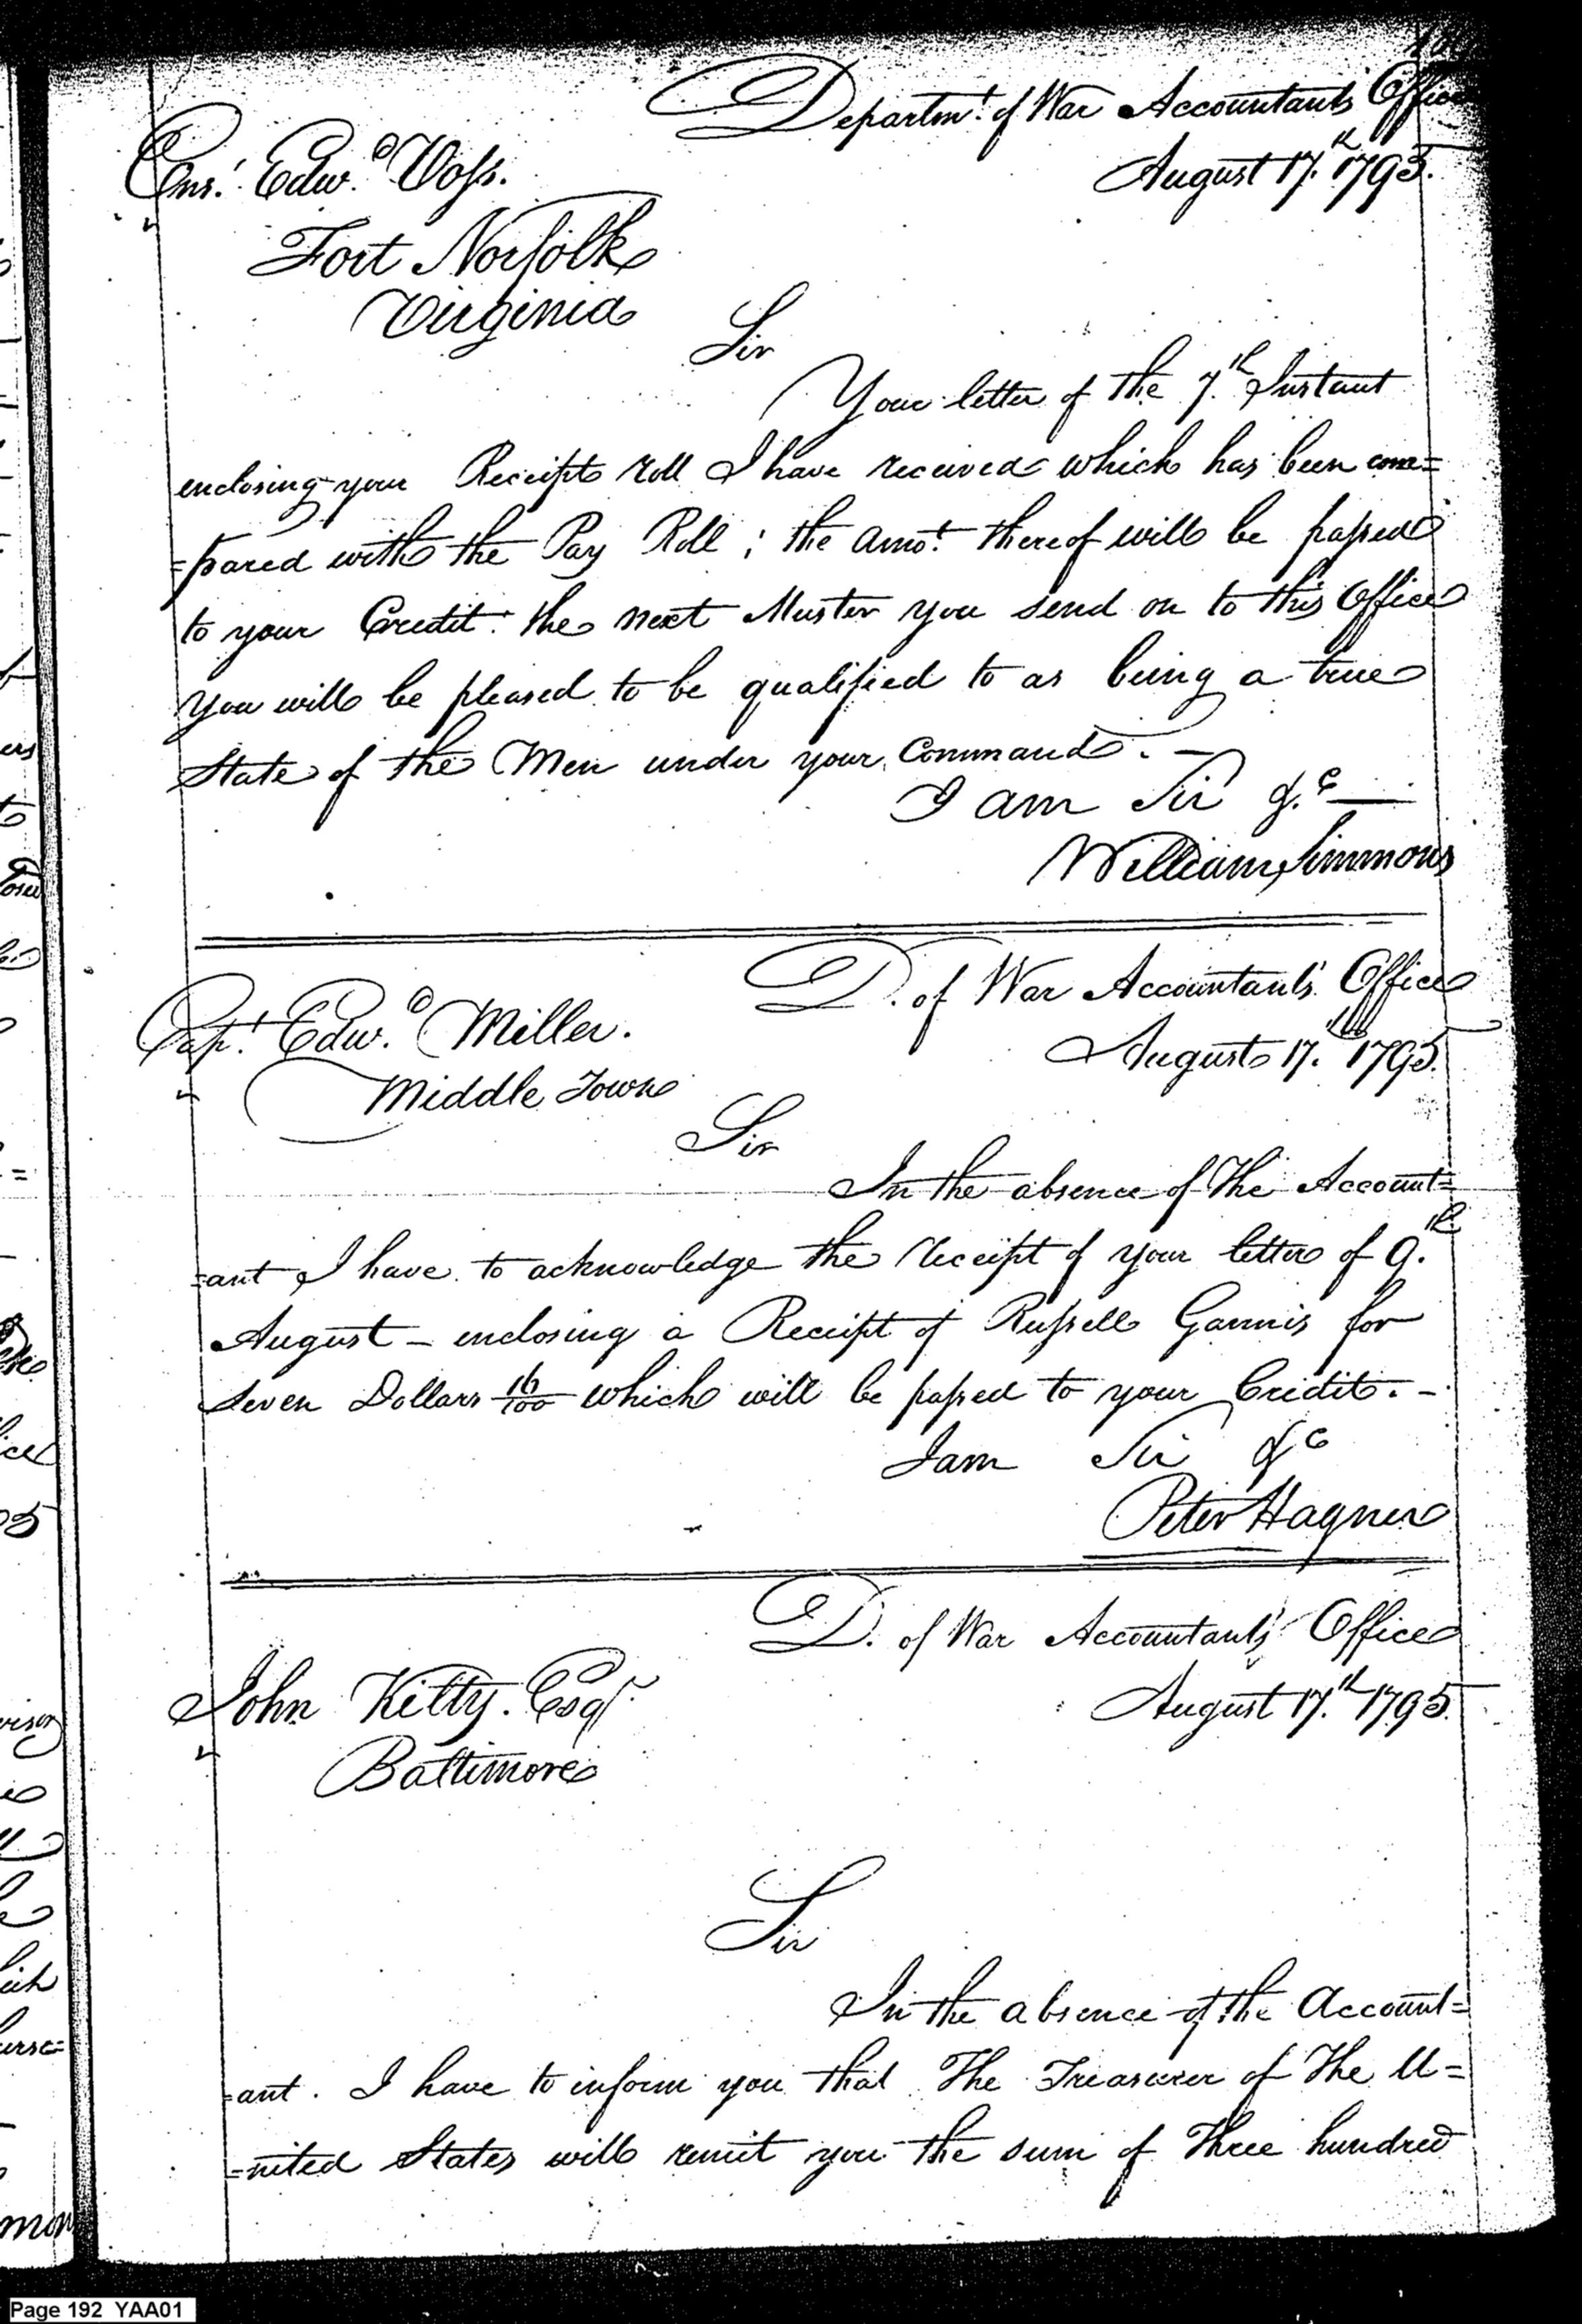 Departmt. of War Accountants Office
August 17th. 1795.
Ensn. Edwd. Voss.
Fort Norfolk
Virginia
Sir
Your letter of the 7th. Instant
enclosing your Receipt roll I have received which has been com=
=pared with the Pay Roll; the amot. thereof will be passed
to your Credit: the next Muster you send on to this Office
you will be pleased to be qualified to as being a true
State of the Men under your Command. —
I am Sir &c. —
William Simmons
D. of War Accountants Office
August 17th. 1795.
Capt. Edwd. Miller.
Middle Town
Sir
In the absence of The Account=
=ant I have to acknowledge the receipt of your letter of 9th.
August — enclosing a Receipt of Russell Gannis for
Seven Dollars 16/100 which will be passed to your Credit. —
I am Sir &c
Peter Hagner
D. of War Accountants' Office
August 17th. 1795.
John Kilty. Esqr.
Baltimore
Sir
In the absence of the Account=
=ant. I have to inform you that The Treasurer of The U=
=nited States will remit you the sum of Three hundred
Page 192 YAA01